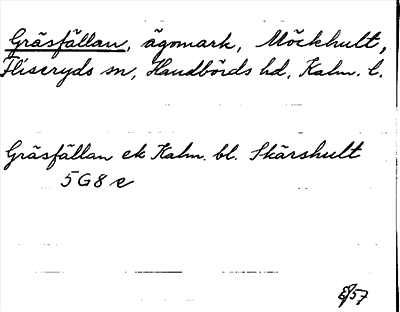 Gräsfällan, ägomark, Möckhult,
Fliseryds sn, Handbörds hd, Kalm. l.
Gräsfällan ek Kalm. bl. Skärshult
5G8e
E/57